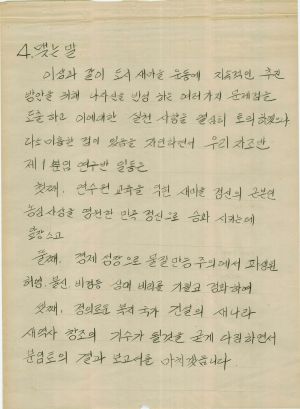 4. 맺는 말
이상과 같이 도시 새마을 운동에 지속적인 추진
방안을 위해 나사실을 반성 하는 여러가지 문제점을
도출 하고 이에대한 실천 사항을 열심히 토의 하였으나
다소 미흡한 점이 있음을 자인하면서 우리
제1분임 연구반 일동은
첫째. 연수원 교육을 통한 새마을 정신의 근본인
농심사상을 영원한 민족 정신으로 승화 시키는데
앞장스고
둘째. 경제 성장으로 물질만능주의에서 파생된
허영. 불신 바람등 상대 비리를 가월고 정화하며
셋째. 정의로운 복지 국가 건설의 새나라
새역사 창조의 기수가 될것을 굳게 다짐하면서
분임토의 결과 보고서를 마치겠습니다